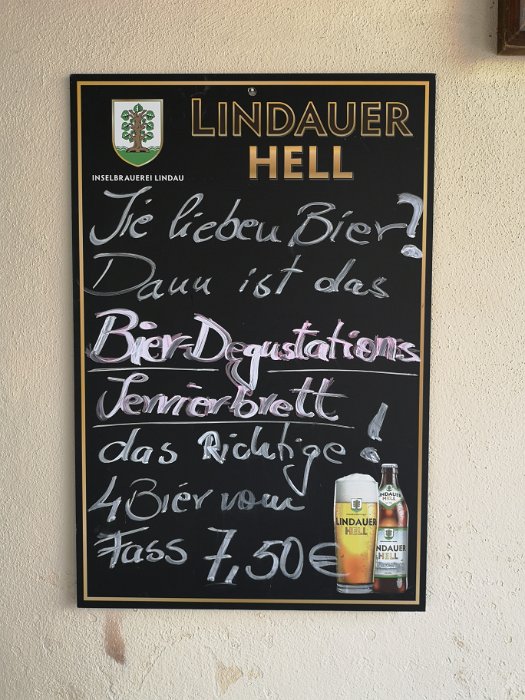 LINDAUER
HELL
INSELBRAUEREI LINDAU
Sie lieben Bier?
Dann ist das
Bier-Degustations
Servierbrett
das Richtige!
4 Bier vom
Fass 7,50€
LINDAUER
HELL
LINDAUER
HELL
LINDAUER
HELL